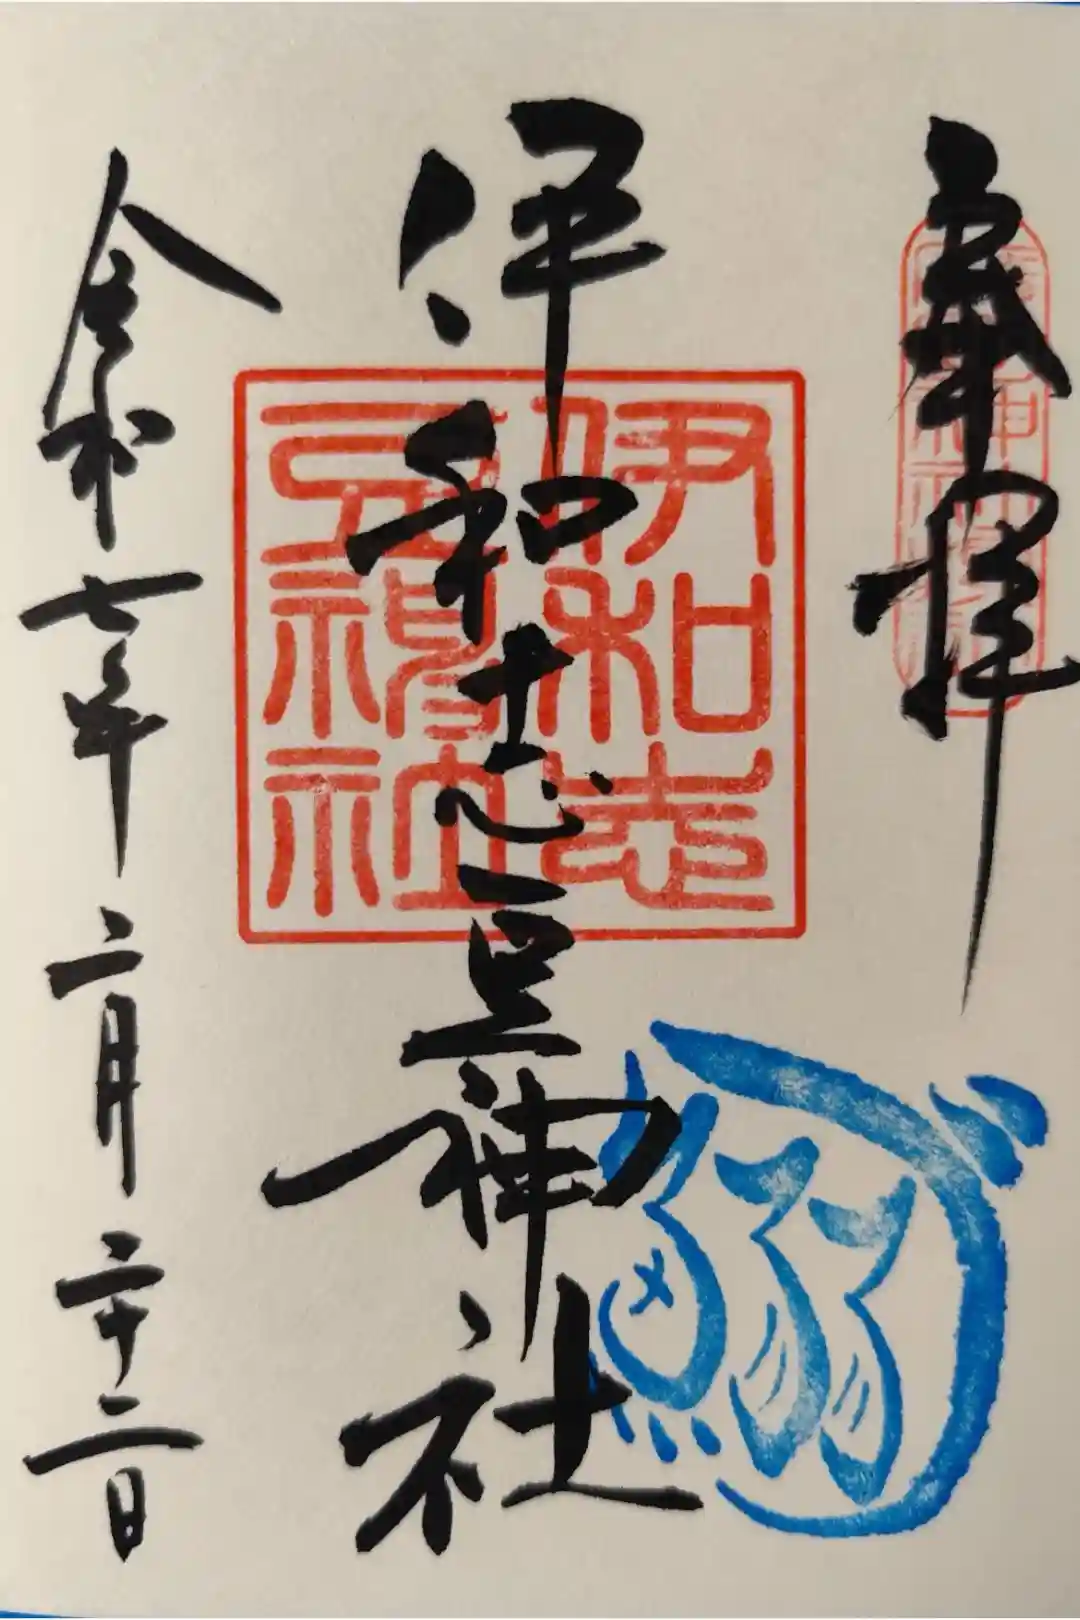 奉拝
伊和志豆神社
令和七年二月二十二日
伊和志
豆神社
鰯づ